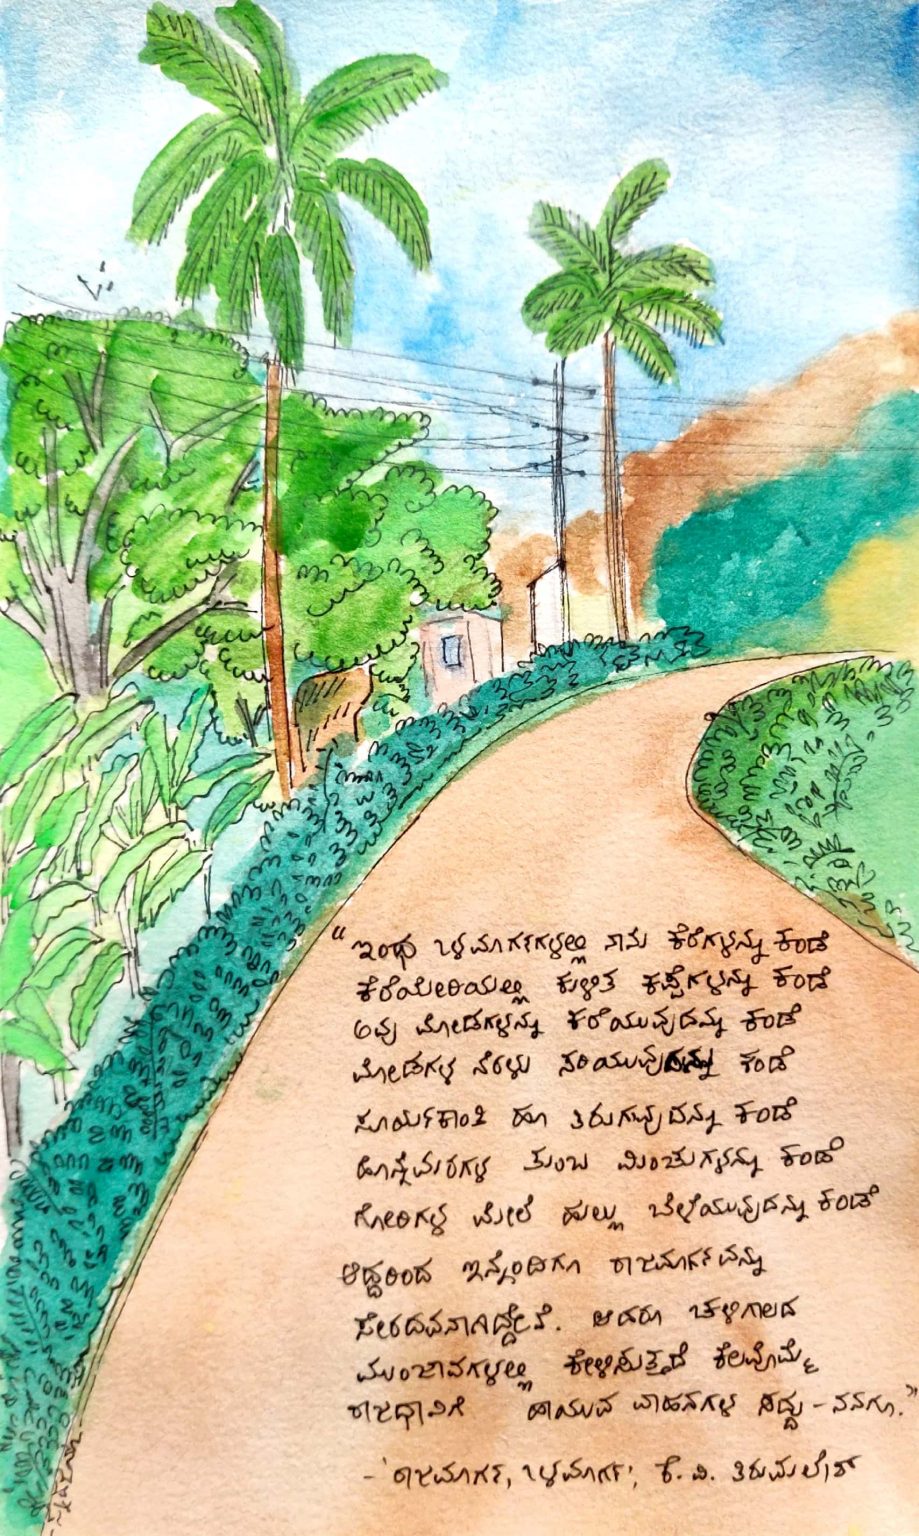 "ಇಂಥ ಒಳಮಾರ್ಗಗಳಲ್ಲಿ ನಾನು ಕೆರೆಗಳನ್ನು ಕಂಡೆ
ಕೆರೆಯೇರಿಯಲ್ಲಿ ಕುಳಿತ ಕಪ್ಪೆಗಳನ್ನು ಕಂಡೆ
ಅವು ಮೋಡಗಳನ್ನು ಕರೆಯುವುದನ್ನು ಕಂಡೆ
ಮೋಡಗಳ ನೆರಳು ಸರಿಯುವುದನ್ನು ಕಂಡೆ
ಸೂರ್ಯಕಾಂತಿ ಹೂ ತಿರುಗುವುದನ್ನು ಕಂಡೆ
ಹೊನ್ನೆಮರಗಳ ತುಂಬ ಮಿಂಚುಗಳನ್ನು ಕಂಡೆ
ಗೋರಿಗಳ ಮೇಲೆ ಹುಲ್ಲು ಬೆಳೆಯುವುದನ್ನು ಕಂಡೆ
ಆದ್ದರಿಂದ ಇನ್ನೊಂದಿಗೂ ರಾಜಮಾರ್ಗವನ್ನು
ಸೇರದವನಾಗಿದ್ದೇನೆ. ಆದರೂ ಚಳಿಗಾಲದ
ಮುಂಜಾವಗಳಲ್ಲಿ ಕೇಳಿಸುತ್ತದೆ ಕೆಲವೊಮ್ಮೆ
ರಾಜಧಾನಿಗೆ ಹಾಯುವ ವಾಹನಗಳ ಸದ್ದು – ನನಗೂ."
– 'ರಾಜಮಾರ್ಗ, ಒಳಮಾರ್ಗ', ಕೆ. ವಿ. ತಿರುಮಲೇಶ್